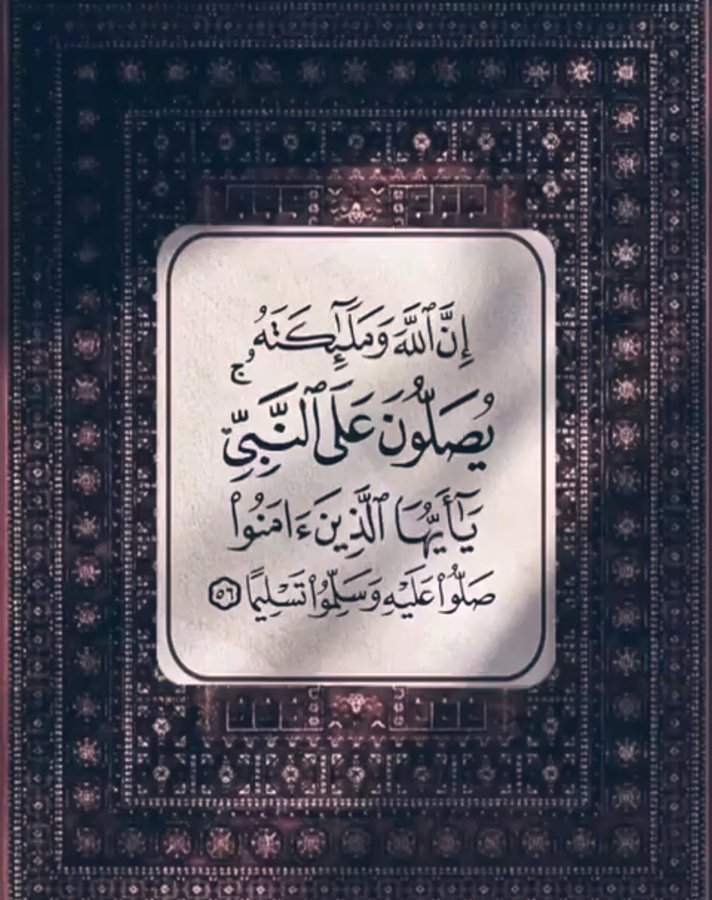 إِنَّ ٱللَّهَ وَمَلَـٰٓئِكَتَهُۥ
يُصَلُّونَ عَلَى ٱلنَّبِيِّ ۚ
يَـٰٓأَيُّهَا ٱلَّذِينَ ءَامَنُوا۟
صَلُّوا۟ عَلَيْهِ وَسَلِّمُوا۟ تَسْلِيمًا ٥٦